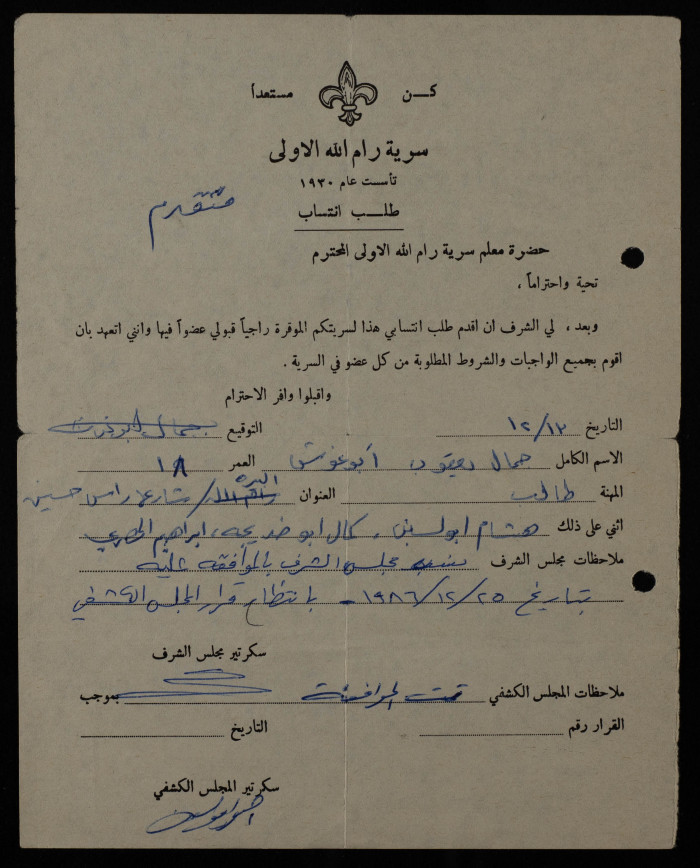 كن مستعداً
سرية رام الله الاولى
تأسست عام ١٩٣٠
متقدم
طلب انتساب
حضرة معلم سرية رام الله الاولى المحترم
تحية واحتراماً ،
وبعد ، لي الشرف ان اقدم طلب انتسابي هذا لسريتكم الموقرة راجياً قبولي عضواً فيها وانني اتعهد بان
اقوم بجميع الواجبات والشروط المطلوبة من كل عضو في السرية .
واقبلوا وافر الاحترام
التاريخ ١٢/١٣ التوقيع
الاسم الكامل جمال يعقوب أبو عوش العمر ١٨
المهنة طالب العنوان البيرة / شارع راس حسين
اثني على ذلك هشام ابو لسن ، كمال ابو خديجه ، ابراهيم
ملاحظات مجلس الشرف ينسب مجلس الشرف بالموافقه عليه
بتاريخ ١٩٨٦/١٢/٢٥ - بانتظار قرار المجلس الكشفي
سكرتير مجلس الشرف
ملاحظات المجلس الكشفي تمت الموافقة بموجب
القرار رقم التاريخ
سكرتير المجلس الكشفي